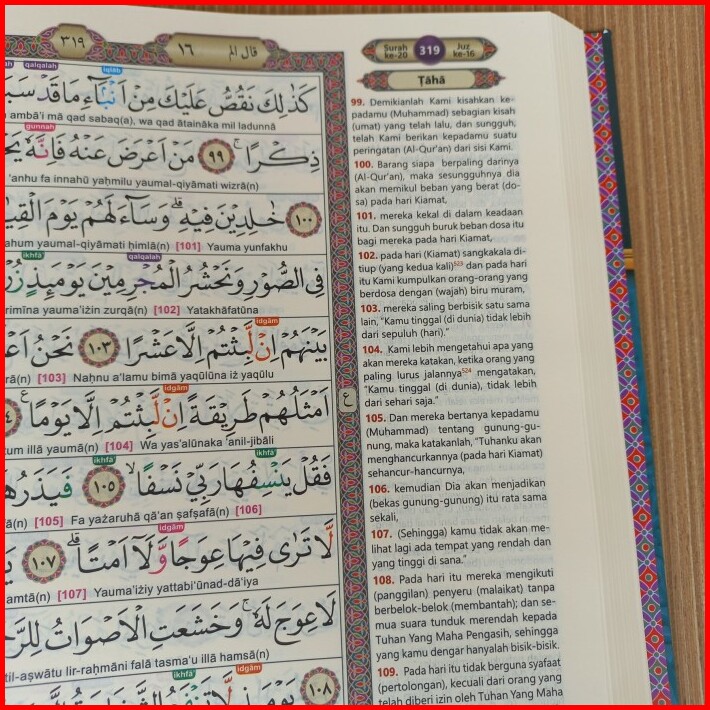 ٣١٩
١٦
قال الم
qalqalah
iqlāb
كَذٰلِكَ نَقُصُّ عَلَيْكَ مِنْ اَنْۢبَاۤءِ مَا قَدْ
ambā'i mā qad sabaq(a), wa qad ātaināka mil ladunnā
gunnah
ذِكْرًا ۚ ٩٩ مَنْ اَعْرَضَ عَنْهُ فَاِنَّهٗ
'anhu fa innahū yaḥmilu yaumal-qiyāmati wizrā(n)
١٠٠ خٰلِدِيْنَ فِيْهِ ۗ وَسَاۤءَ لَهُمْ يَوْمَ
lahum yaumal-qiyāmati ḥimlā(n) [101] Yauma yunfakhu
ikhfā
qalqalah
فِى الصُّوْرِ وَنَحْشُرُ الْمُجْرِمِيْنَ يَوْمَىِٕذٍ
yauma'iżin zurqā(n) [102] Yatakhāfatūna
idgām
بَيْنَهُمْ اِنْ لَّبِثْتُمْ اِلَّا عَشْرًا ١٠٣ نَحْنُ
[103] Naḥnu a'lamu bimā yaqūlūna iż yaqūlu
idgām
اَمْثَلُهُمْ طَرِيْقَةً اِنْ لَّبِثْتُمْ اِلَّا يَوْمًا ࣖ
illā yaumā(n) [104] Wa yas'alūnaka 'anil-jibāli
ikhfā
ikhfā
فَقُلْ يَنْسِفُهَا رَبِّيْ نَسْفًا ۙ ١٠٥
[105] Fa yażaruhā qā'an ṣafṣafā(n) [106]
idgām
لَّا تَرٰى فِيْهَا عِوَجًا وَّلَآ اَمْتًا ۗ ١٠٧
amtā(n) [107] Yauma'iżiy yattabi'ūnad-dā'iya
لَا عِوَجَ لَهٗ ۚ وَخَشَعَتِ الْاَصْوَاتُ
lir-raḥmāni falā tasma'u illā hamsā(n)
ikhfā
idgām
١٠٨
ع
Surah ke-20
319
Juz ke-16
Ṭāhā
99. Demikianlah Kami kisahkan ke-
padamu (Muhammad) sebagian kisah
(umat) yang telah lalu, dan sungguh,
telah Kami berikan kepadamu suatu
peringatan (Al-Qur'an) dari sisi Kami.
100. Barang siapa berpaling darinya
(Al-Qur'an), maka sesungguhnya dia
akan memikul beban yang berat (do-
sa) pada hari Kiamat,
101. mereka kekal di dalam keadaan
itu. Dan sungguh buruk beban dosa itu
bagi mereka pada hari Kiamat,
102. pada hari (Kiamat) sangkakala di-
tiup (yang kedua kali)523 dan pada hari
itu Kami kumpulkan orang-orang yang
berdosa dengan (wajah) biru muram,
103. mereka saling berbisik satu sama
lain, "Kamu tinggal (di dunia) tidak lebih
dari sepuluh (hari)."
104. Kami lebih mengetahui apa yang
akan mereka katakan, ketika orang yang
paling lurus jalannya524 mengatakan,
"Kamu tinggal (di dunia), tidak lebih
dari sehari saja."
105. Dan mereka bertanya kepadamu
(Muhammad) tentang gunung-gu-
nung, maka katakanlah, "Tuhanku akan
menghancurkannya (pada hari Kiamat)
sehancur-hancurnya,
106. kemudian Dia akan menjadikan
(bekas gunung-gunung) itu rata sama
sekali,
107. (Sehingga) kamu tidak akan me-
lihat lagi ada tempat yang rendah dan
yang tinggi di sana."
108. Pada hari itu mereka mengikuti
(panggilan) penyeru (malaikat) tanpa
berbelok-belok (membantah); dan se-
mua suara tunduk merendah kepada
Tuhan Yang Maha Pengasih, sehingga
yang kamu dengar hanyalah bisik-bisik.
109. Pada hari itu tidak berguna syafaat
(pertolongan), kecuali dari orang yang
telah diberi izin oleh Tuhan Yang Maha